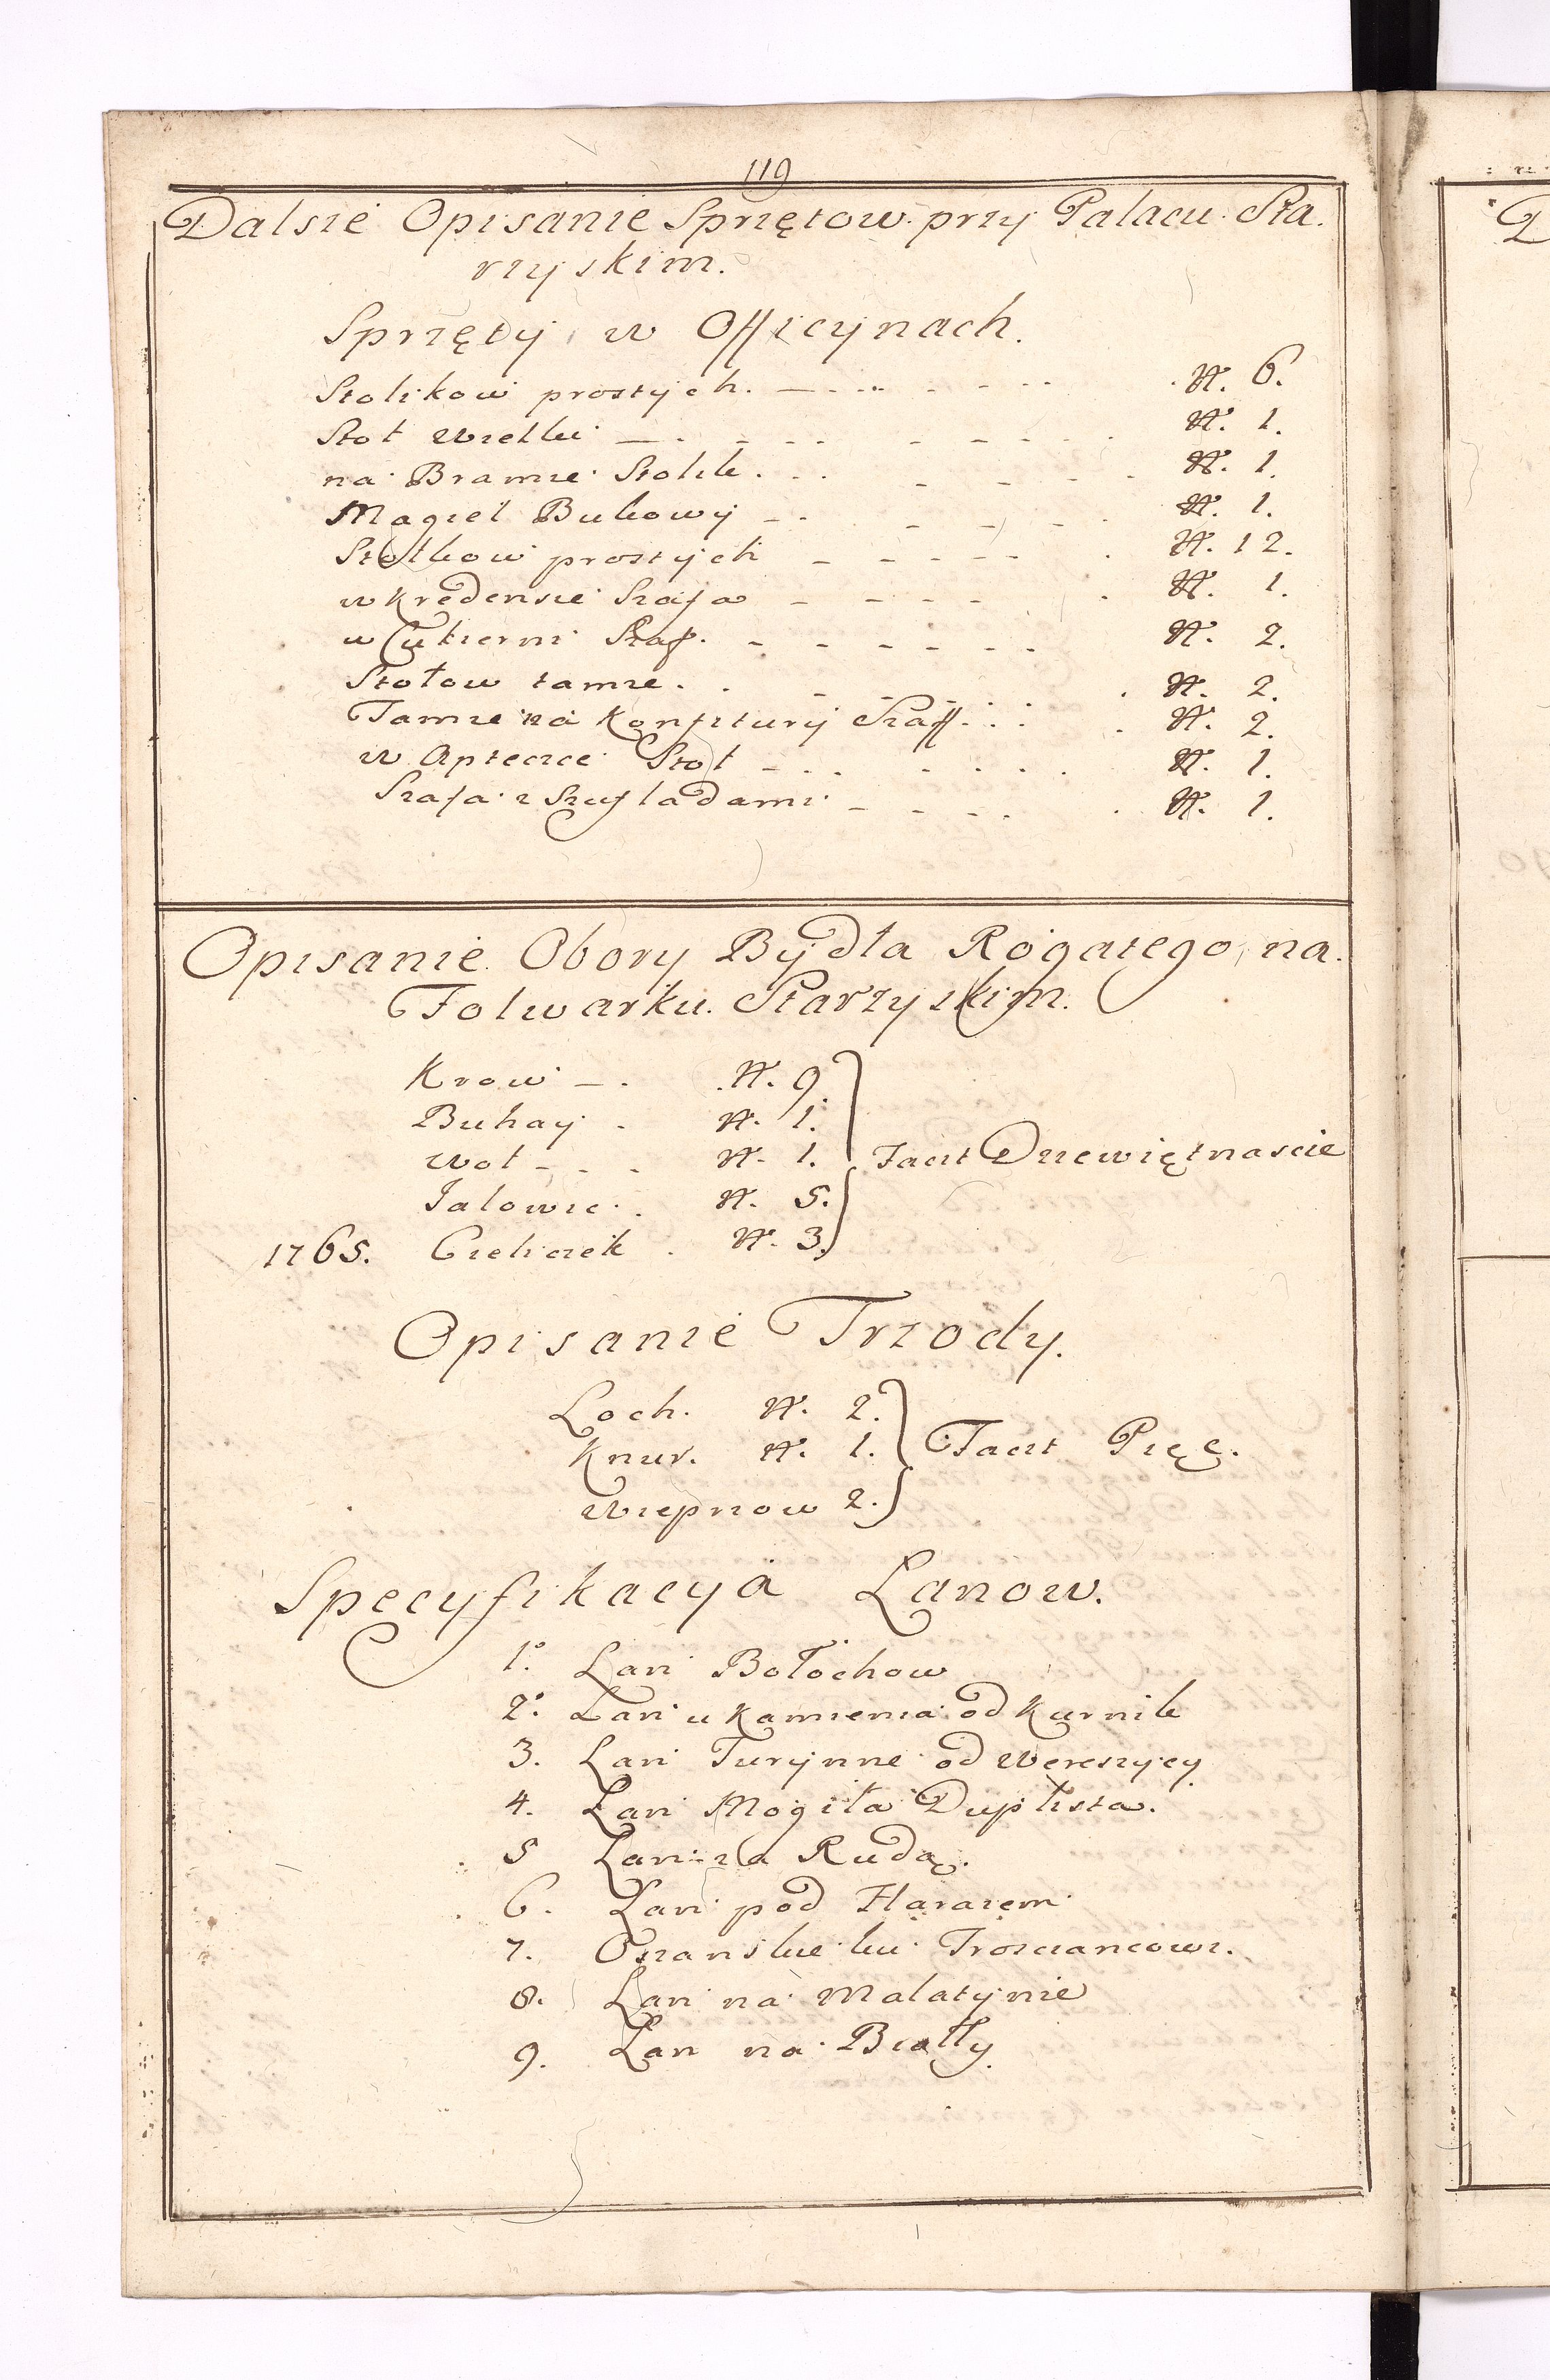 119
Dalsze Opisanie Sprzętow przy Palacu Sta.
rzyskim.
Sprzęty w Officynach.
Stolikow prostych. N. 6.
Stoł Wielki N. 1.
na Bramie Stolik N. 1.
Magiel Bukowy N. 1.
Stołkow prostych N. 12.
w kredensie Szafa N. 1.
w Cukierni Szaf. N. 2.
Stołow tamze N. 2.
Tamze na Konfitury Szaff N. 2.
w Apteczce Stoł N. 1.
Szafa z Szufladami N. 1.
Opisanie Obory Bydła Rogatego na
Folwarku Starzyskim.
Krow N. 9.
Buhay N. 1.
Woł N. 1. Facit Dziewiętnascie
Jalowic N. 5.
1765. Cieliczek N. 3.
Opisanie Trzody.
Loch. N. 2.
Knur. N. 1. Facit Pięc.
Wieprzow 2.
Specyfikacya Lanow.
1º Lan Bołochow
2º Lan u Kamienia od Kurnik
3. Lan Turynne od Wereszycy
4. Lan Mogiła Duplista.
5 Lan za Rudą.
6. Lan pod Hararem
7. Oszanskie ku Trosciancowi.
8. Lan na Malatynie
9. Lan na Białły